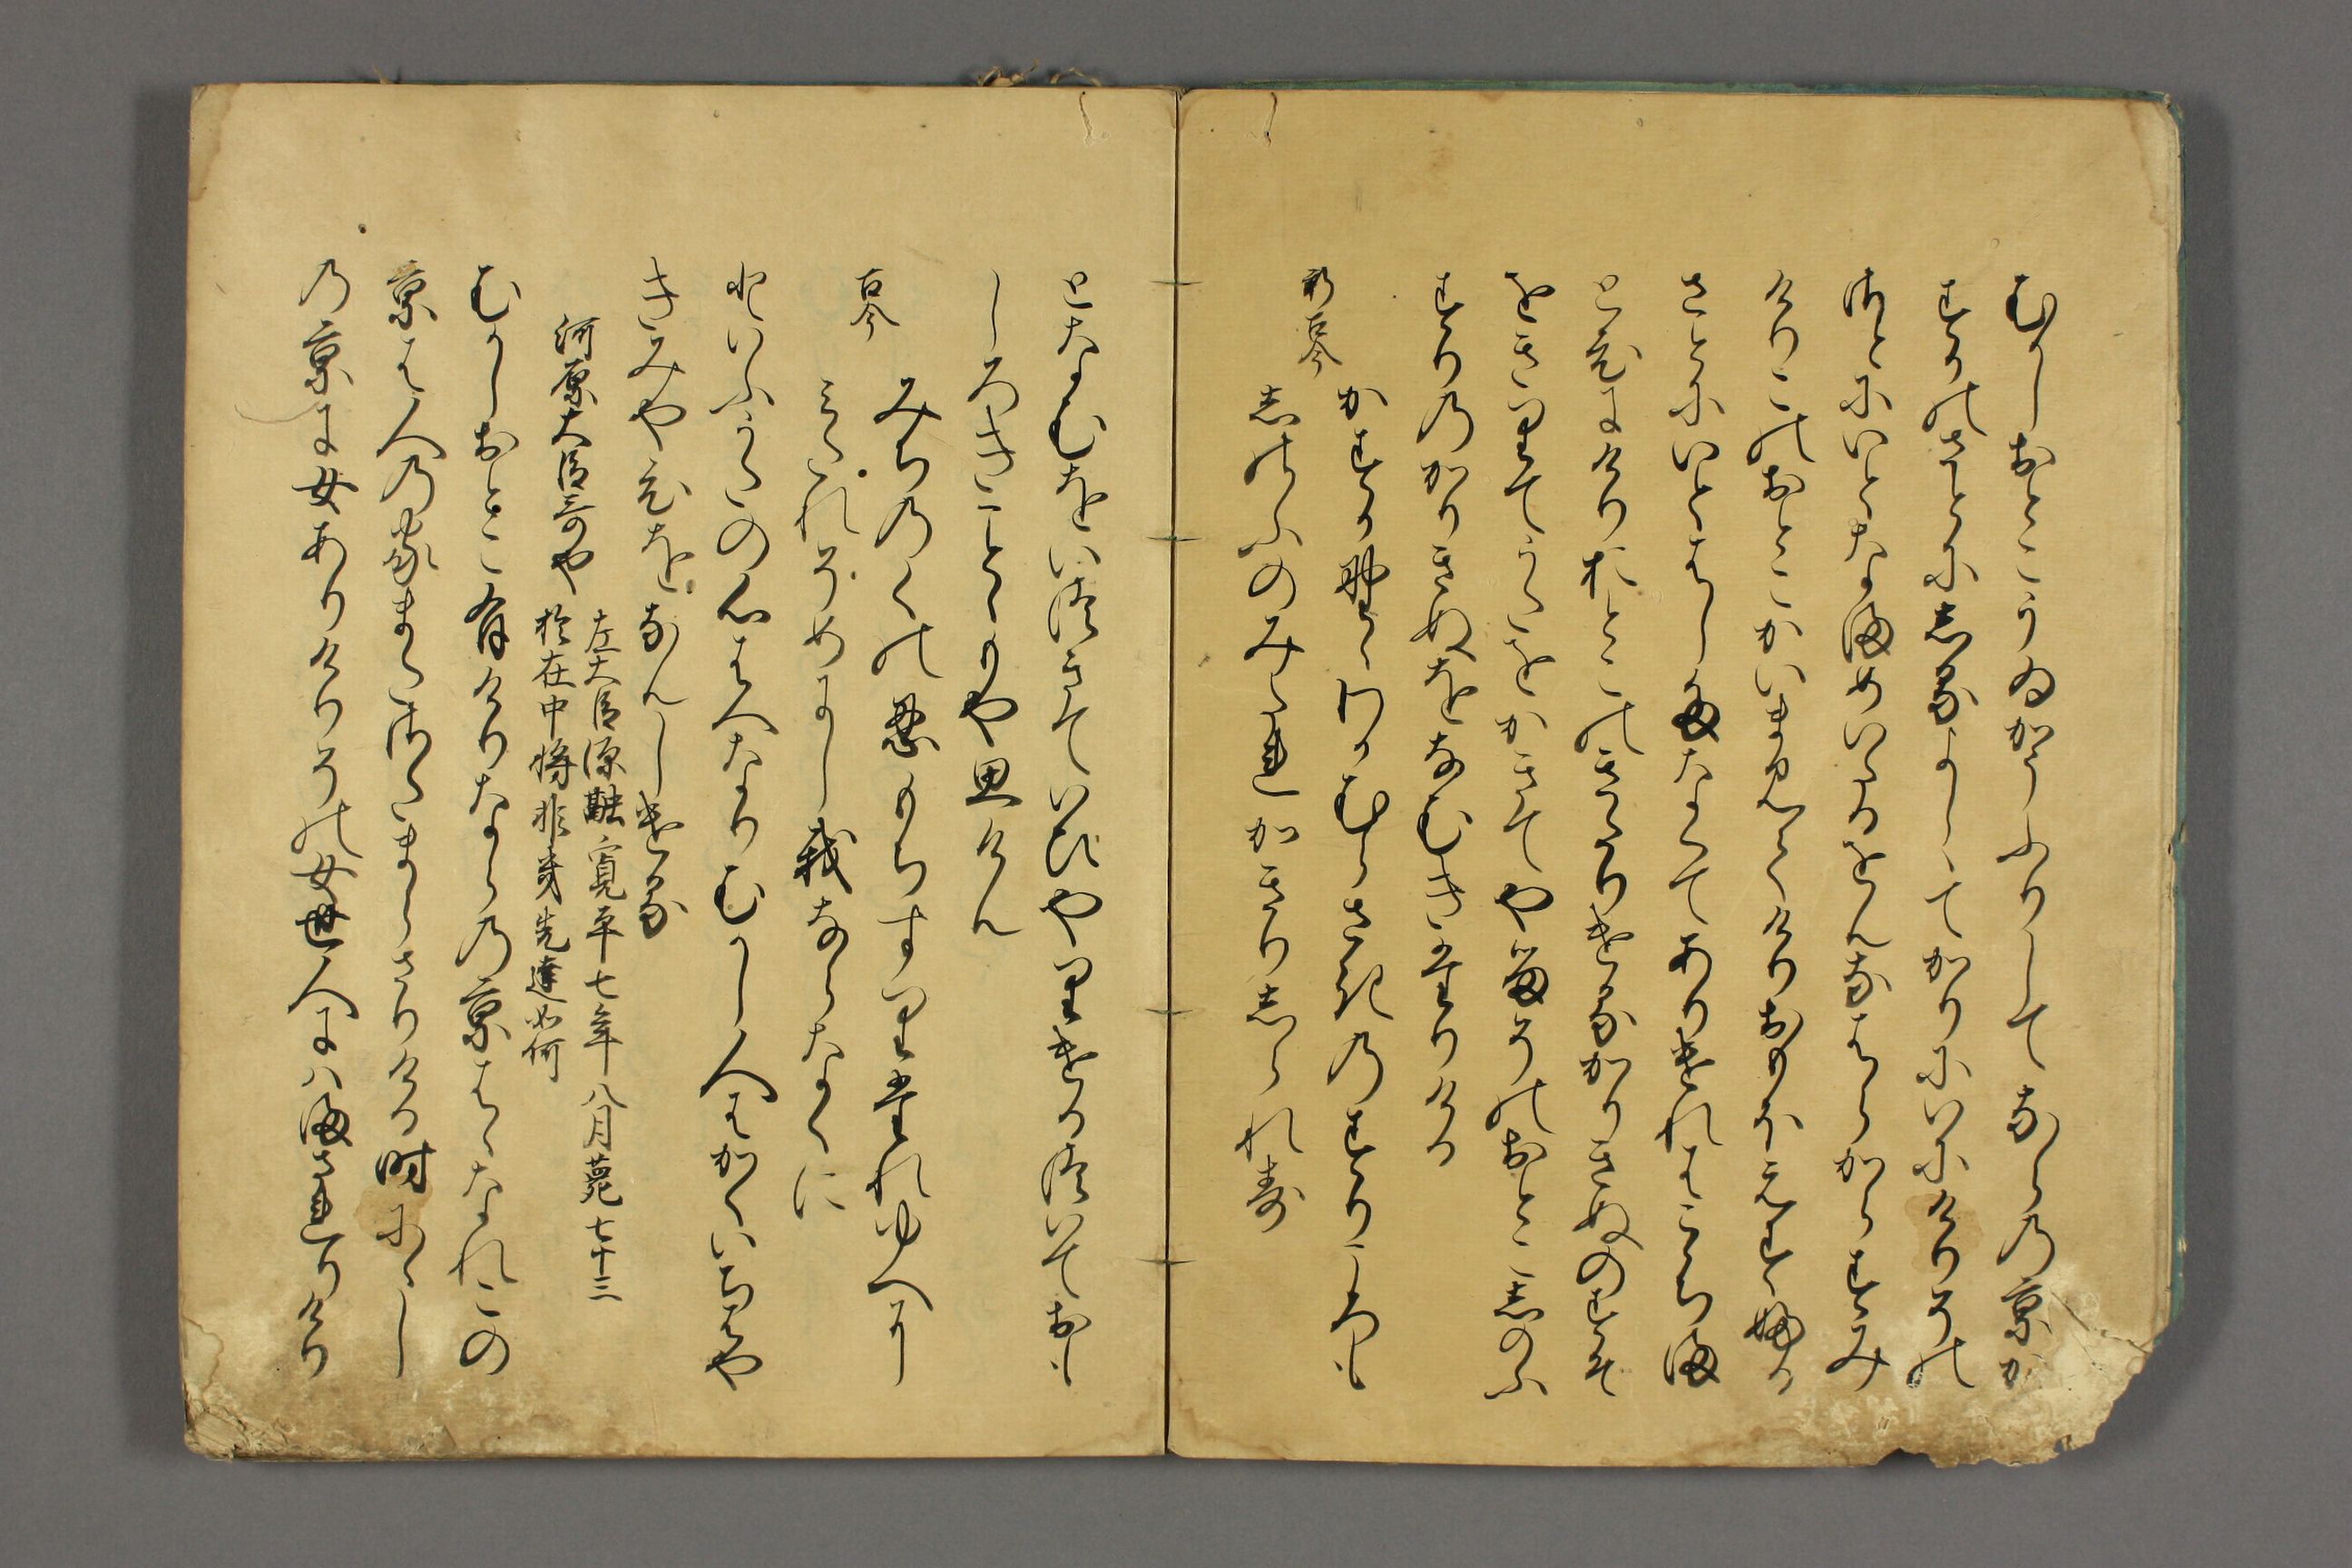 むかしおとこうゐかうふりしてならの京か
すかのさとにしるよしゝてかりにいにけりその
さとにいとなまめいたるをんなはらからすみ
けりこのおとこかいま見てけりおもほえすふる
さとにいとはしたなくてありけれはこゝちま
とひにけりおとこのきたりけるかりきぬのすそ
をきりてうたをかきてやるそのおとこしのふ
すりのかりきぬをなむきたりける
新古今
かすか野ゝわかむらさきのすりころも
しのふのみたれかきりしられす
となむをいつきていひやりけるついておも
しろきことゝもや思けん
古今
みちのくの忍もちすりたれゆへに
みたれそめにし我ならなくに
といふうたの心はへなりむかし人はかくいちはや
きみやひをなんしける
河原大臣哥や
左大臣源融寛平七年八月薨七十三
於在中将非幾先達如何
むかしおとこ有けりならの京ははなれこの
京は人の家またさたまらさりける時にゝし
の京に女ありけりその女世人にはまされりけり